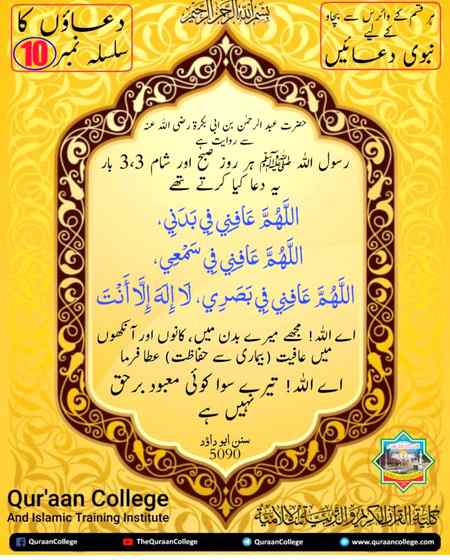 بسم الله الرحمن الرحيم
ہر قسم کے وائرس سے بچاؤ
کے لیے
نبوی دعائیں
دعاؤں کا
سلسلہ نمبر 10
حضرت عبد الرحمٰن بن ابی بکرۃ رضی اللہ عنہ
سے روایت ہے
رسول اللہ ﷺ ہر روز صبح اور شام 3،3 بار
یہ دعا کیا کرتے تھے
اللَّهُمَّ عَافِنِي فِي بَدَنِي،
اللَّهُمَّ عَافِنِي فِي سَمْعِي،
اللَّهُمَّ عَافِنِي فِي بَصَرِي، لَا إِلَهَ إِلَّا أَنْتَ
اے اللہ! مجھے میرے بدن میں، کانوں اور آنکھوں
میں عافیت (بیماری سے حفاظت) عطا فرما
اے اللہ! تیرے سوا کوئی معبود برحق
نہیں ہے
سنن ابو داؤد
5090
Qur'aan College
And Islamic Training Institute
كلية القرآن الكريم والتربية الإسلامية
QuraanCollege
TheQuraanCollege
QuraanCollege
www.quraancollege.com